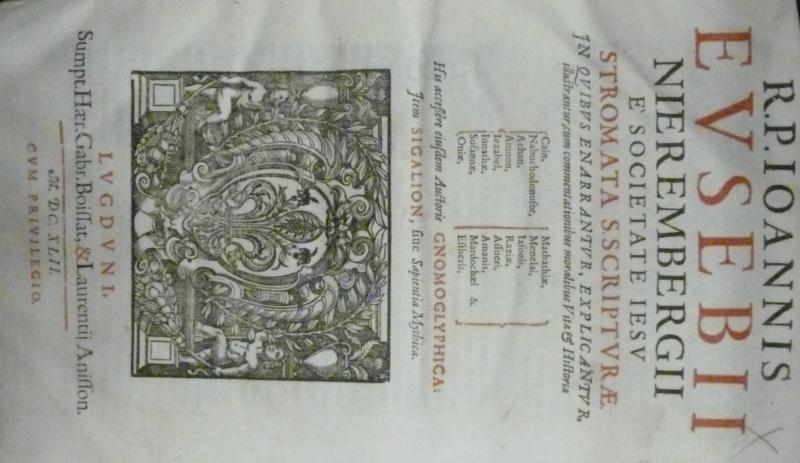 R. P. IOANNIS
EVSEBII
NIEREMBERGII
E' SOCIETATE IESV
STROMATA S SCRIPTVRÆ.
IN QVIBVS ENARRANTVR, EXPLICANTVR,
illustrantur, cum commentationibus moralibus Vita & Historia
Cain,
Nabuchodonosor,
Achan,
Amnon,
Iezabel,
Ionathæ,
Susannæ,
Oniæ,
Mathathiæ,
Menelai,
Iasonis,
Raziæ,
Assueri,
Amanis,
Mardochæi &
Estheris,
His accessere eiusdem Auctoris GNOMOGLYPHICA:
Item SIGALION, siue Sapientia Mythica.
LVGDVNI,
Sumpt. Hær. Gabr. Boissat, & Laurentii Anisson.
M. DC. XLII.
CVM PRIVILEGIO.